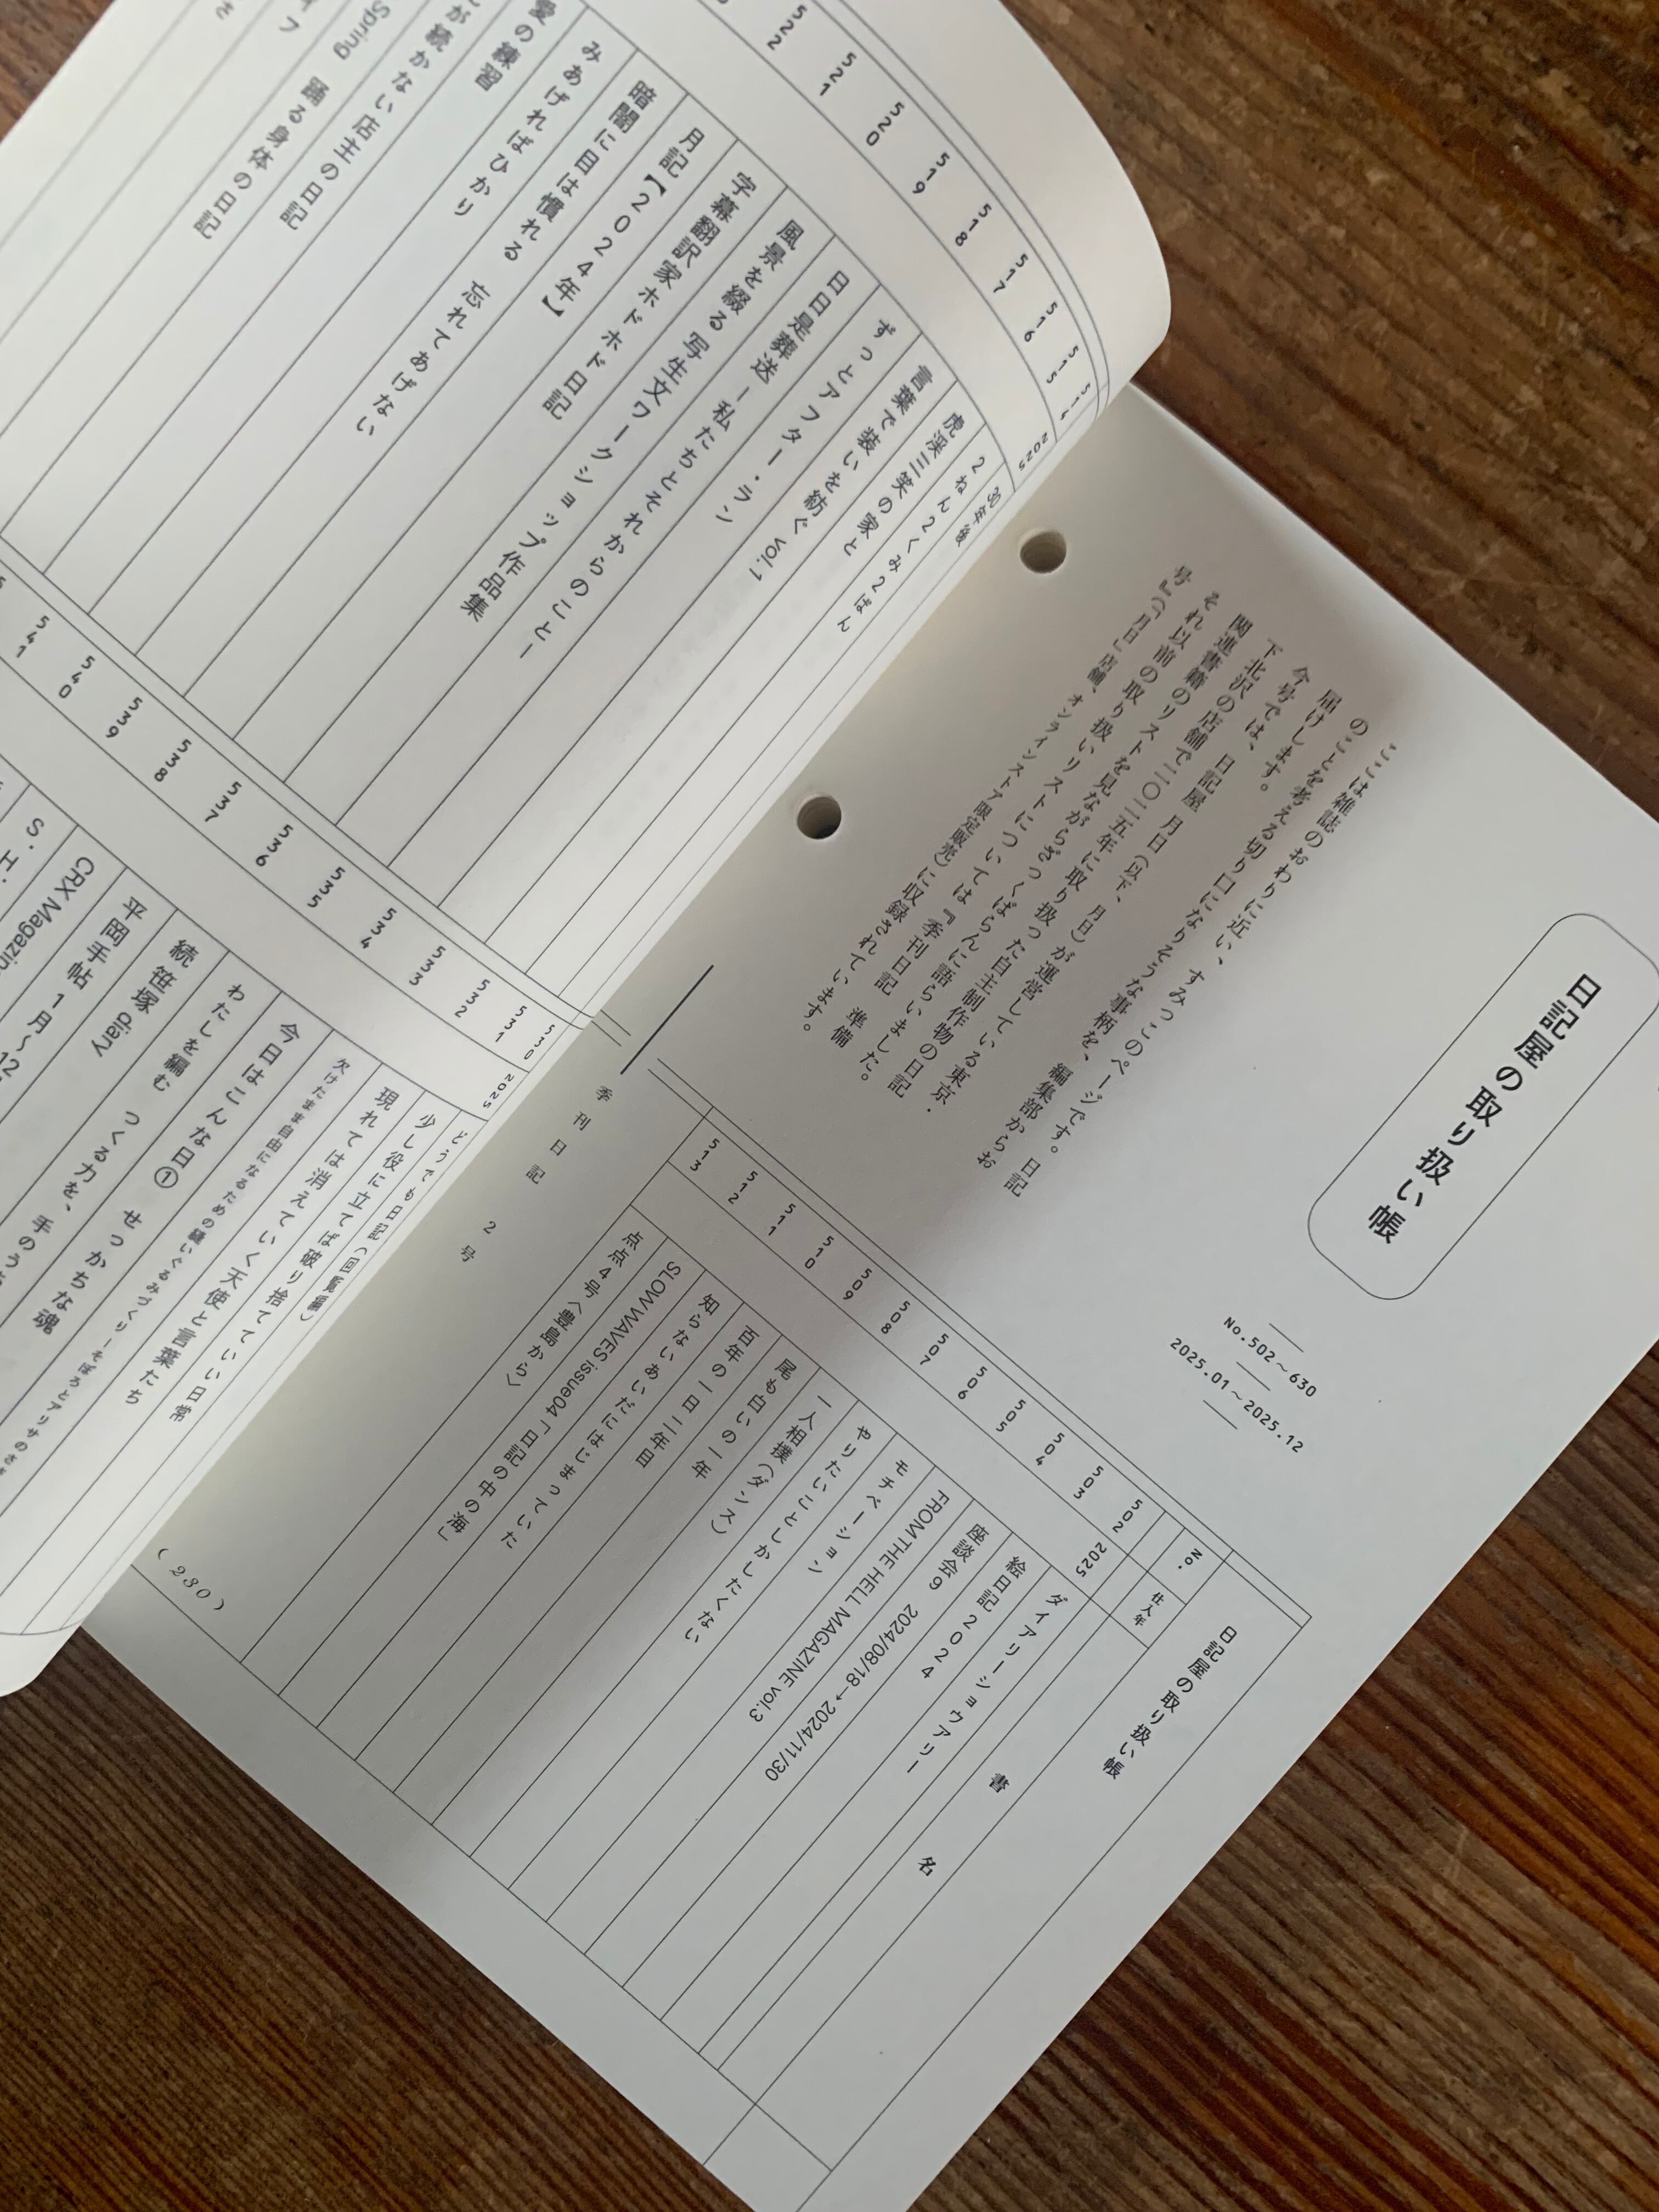 日記屋の取り扱い帳
No.502〜630
2025.01〜2025.12
ここは雑誌のおわりに近い、すみっこのページです。日記
のことを考える切り口になりそうな事柄を、編集部からお
届けします。
今号では、日記屋 月日(以下、月日)が運営している東京・
下北沢の店舗で二〇二五年に取り扱った自主制作物の日記
関連書籍のリストを見ながらざっくばらんに語らいました。
それ以前の取り扱いリストについては『季刊日記 準備
号』(「月日」店舗、オンラインストア限定販売)に収録されています。
日記屋の取り扱い帳
No.
仕入年
書名
502
2025
ダイアリーショウアリー
503
絵日記2024
504
座談会9 2024/08/18→2024/11/30
505
FROM THE HELL MAGAZINE vol.3
506
モチベーション
507
やりたいことしかしたくない
508
一人相撲(ダンス)
509
尾も白いの一年
510
百年の一日 二年目
511
知らないあいだにはじまっていた
512
SLOW WAVES issue04「日記の中の海」
513
点点4号〈豊島から〉
季刊日記 2号
(230)
514
2025
30年後
515
2ねん2くみ2ばん
516
虎渓三笑の家と
517
言葉で装いを紡ぐ vol.1
518
ずっとアフター・ラン
519
日日是葬送ー私たちとそれからのことー
520
風景を綴る 写生文ワークショップ作品集
521
字幕翻訳家ホドホド日記
522
月記【2024年】
暗闇に目は慣れる 忘れてあげない
みあげればひかり
愛の練習
が続かない店主の日記
Spring 踊る身体の日記
530
2025
どうでも日記(回覧編)
531
少し役に立てば破り捨てていい日常
532
現れては消えていく天使と言葉たち
533
欠けたまま自由になるための繕いぐるみづくりーそぼろとアリサの
534
今日はこんな日① せっかちな魂
535
わたしを編む つくる力を、手のう
536
続 笹塚 diary
537
平岡手帖 1月〜12
538
CRX Magazin
539
S.H.
540
541